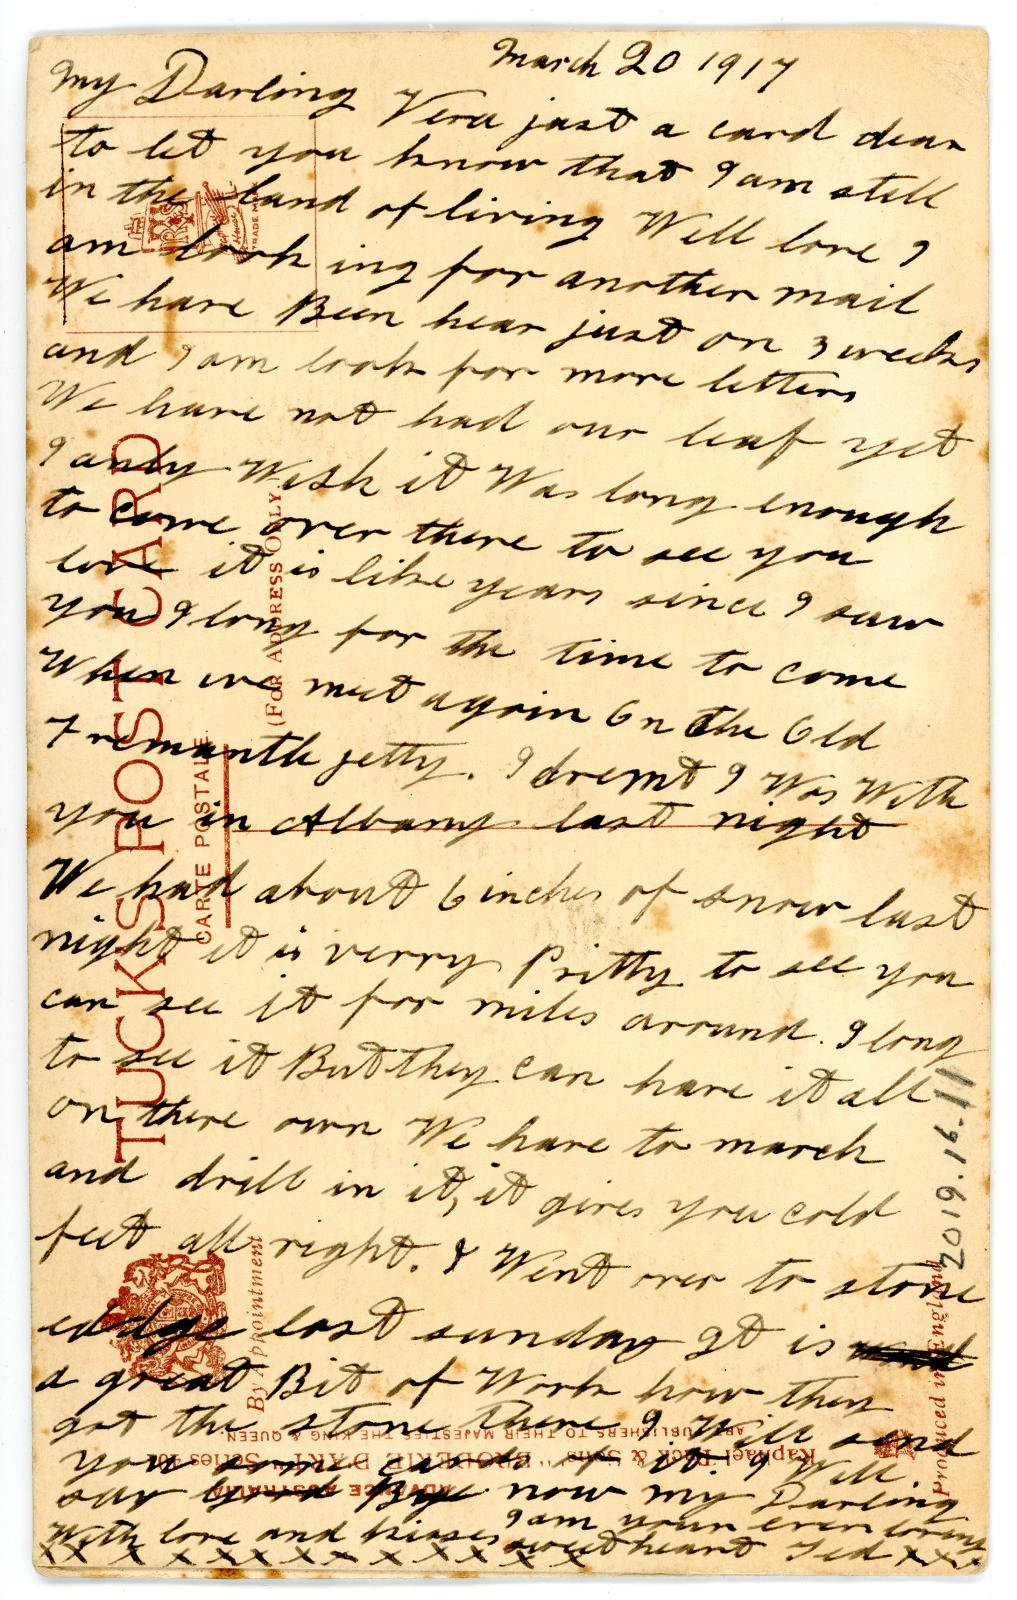 March 20 1917
My Darling Vera just a card dear
to let you know that I am still
in the land of living Well love I
am look ing for another mail
We have Been hear just on 3 weeks
and I am look for more letters
We have not had our leaf yet
I andy Wish it Was long enough
to come over there to see you
love it is like years since I saw
you I long for the time to come
When we meet again On the Old
Fremantle jetty. I dremt I Was With
you in Albany last night
We had about 6 inches of snow last
night it is verry Pritty to see you
can see it for miles around. I long
to see it But they can have it all
on there own We have to march
and drill in it, it gives you cold
feet all right. I Went over to stone
edge last sunday It is
a great Bit of Work how they
got the stone there I Will send
you some cards of it. I Will
say Good Bye now my Darling
With love and kisses I am your ever loving
sweetheart Ted x x x
x x x x x x x x x x x x x
TUCK'S POST CARD
CARTE POSTALE
(FOR ADDRESS ONLY)
TRADE MARK
By Appointment
Raphael Tuck & Sons "BRODERIE D'ART" Series
ART PUBLISHERS TO THEIR MAJESTIES THE KING & QUEEN.
ADVANCE AUSTRALIA
Produced in England
2019.16.11